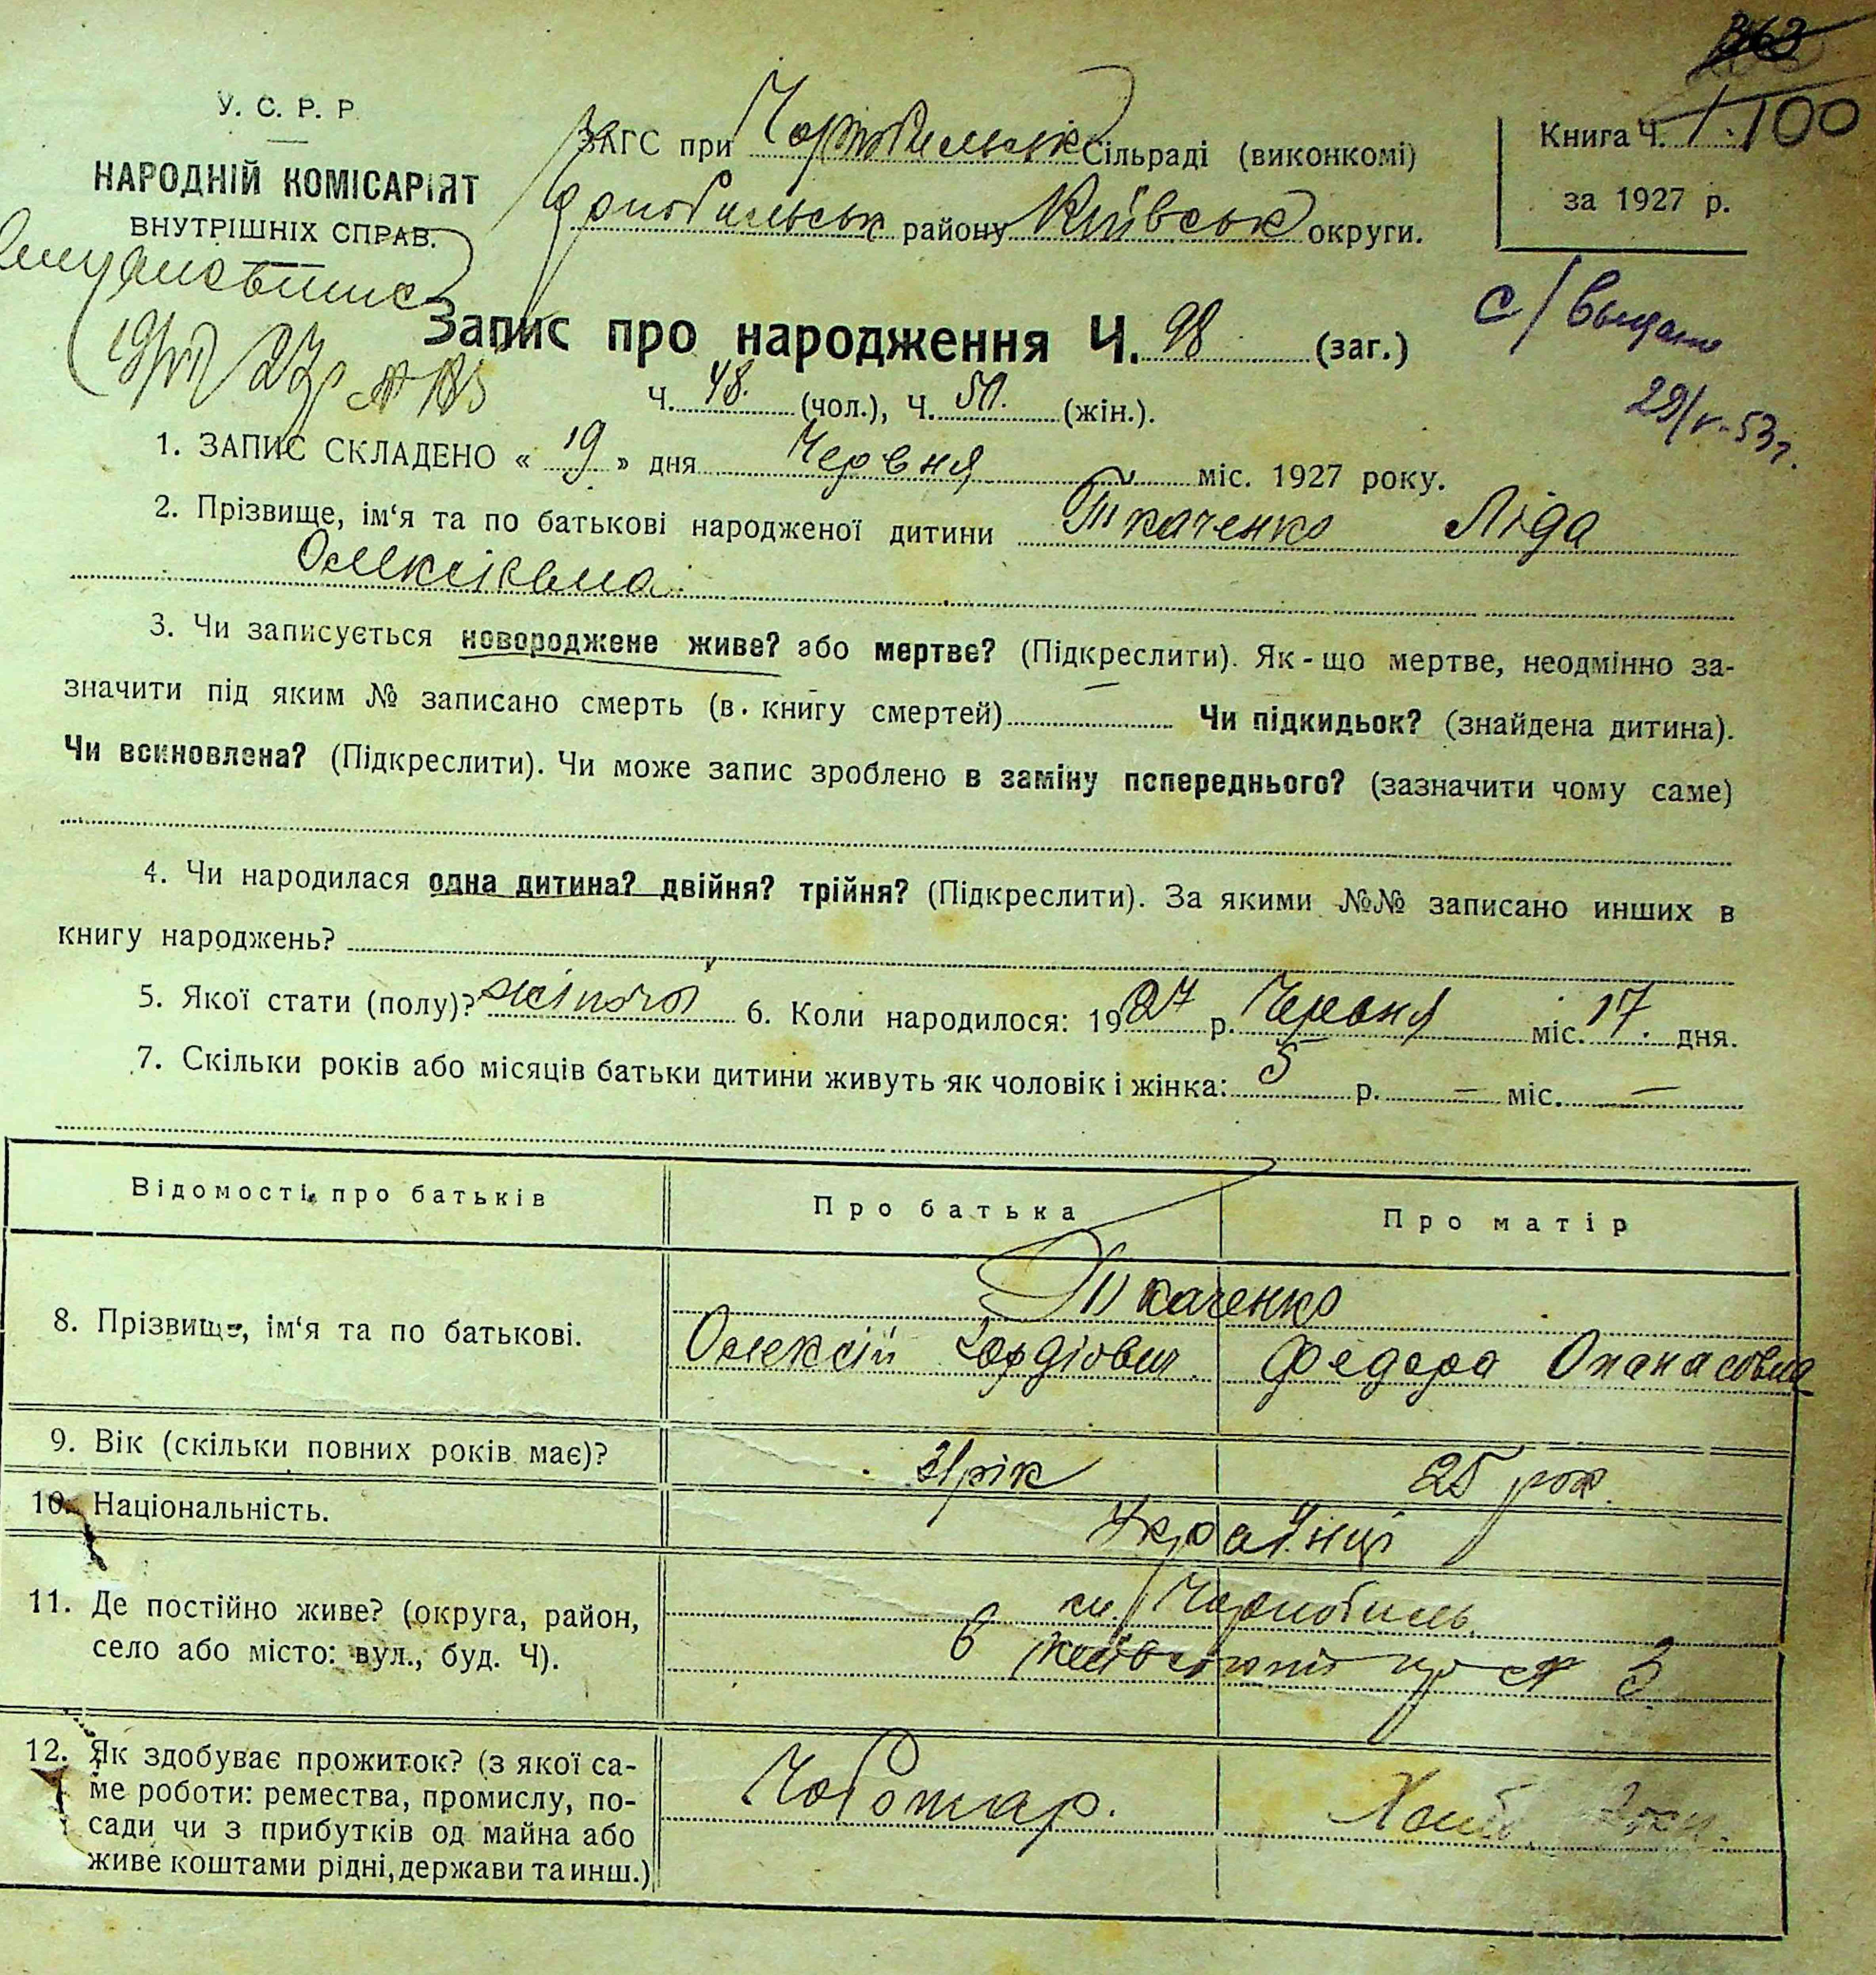 363
100
У. С. Р. Р
НАРОДНІЙ КОМІСАРІЯТ
ВНУТРІШНІХ СПРАВ.
ЗАГС при Чорнобильськ Сільраді (виконкомі)
Чорнобильськ району Київськ округи.
Книга Ч. 1.
за 1927 р.
19/VI 27р № 185
с/ выдано
29/V-53г.
Запис про народження Ч. 98 (заг.)
Ч. 48. (чол.), Ч. 50. (жін.).
1. ЗАПИС СКЛАДЕНО « 19 » дня Червня міс. 1927 року.
2. Прізвище, ім‘я та по батькові народженої дитини Ткаченко Ліда
Олексіївна.
3. Чи записується новороджене живе? або мертве? (Підкреслити). Як-що мертве, неодмінно за-
значити під яким № записано смерть (в книгу смертей) Чи підкидьок? (знайдена дитина).
Чи всиновлена? (Підкреслити). Чи може запис зроблено в заміну попереднього? (зазначити чому саме)
4. Чи народилася одна дитина? двійня? трійня? (Підкреслити). За якими №№ записано инших в
книгу народжень?
5. Якої стати (полу)? жіночої 6. Коли народилося: 1927 р. Червня міс. 17. дня.
7. Скільки років або місяців батьки дитини живуть як чоловік і жінка: 5 р. — міс. —
Відомості про батьків Про батька Про матір
8. Прізвище, ім‘я та по батькові.
Ткаченко
Олексій Гордіович. Федора Опанасовна
9. Вік (скільки повних років має)? 31 рік 25 рок.
10. Національність. Українці
11. Де постійно живе? (округа, район,
село або місто: вул., буд. Ч).
м. Чорнобиль.
в № 3
12. Як здобуває прожиток? (з якої са-
ме роботи: ремества, промислу, по-
сади чи з прибутків од майна або
живе коштами рідні, держави та инш.)
Чоботар.
Хат.